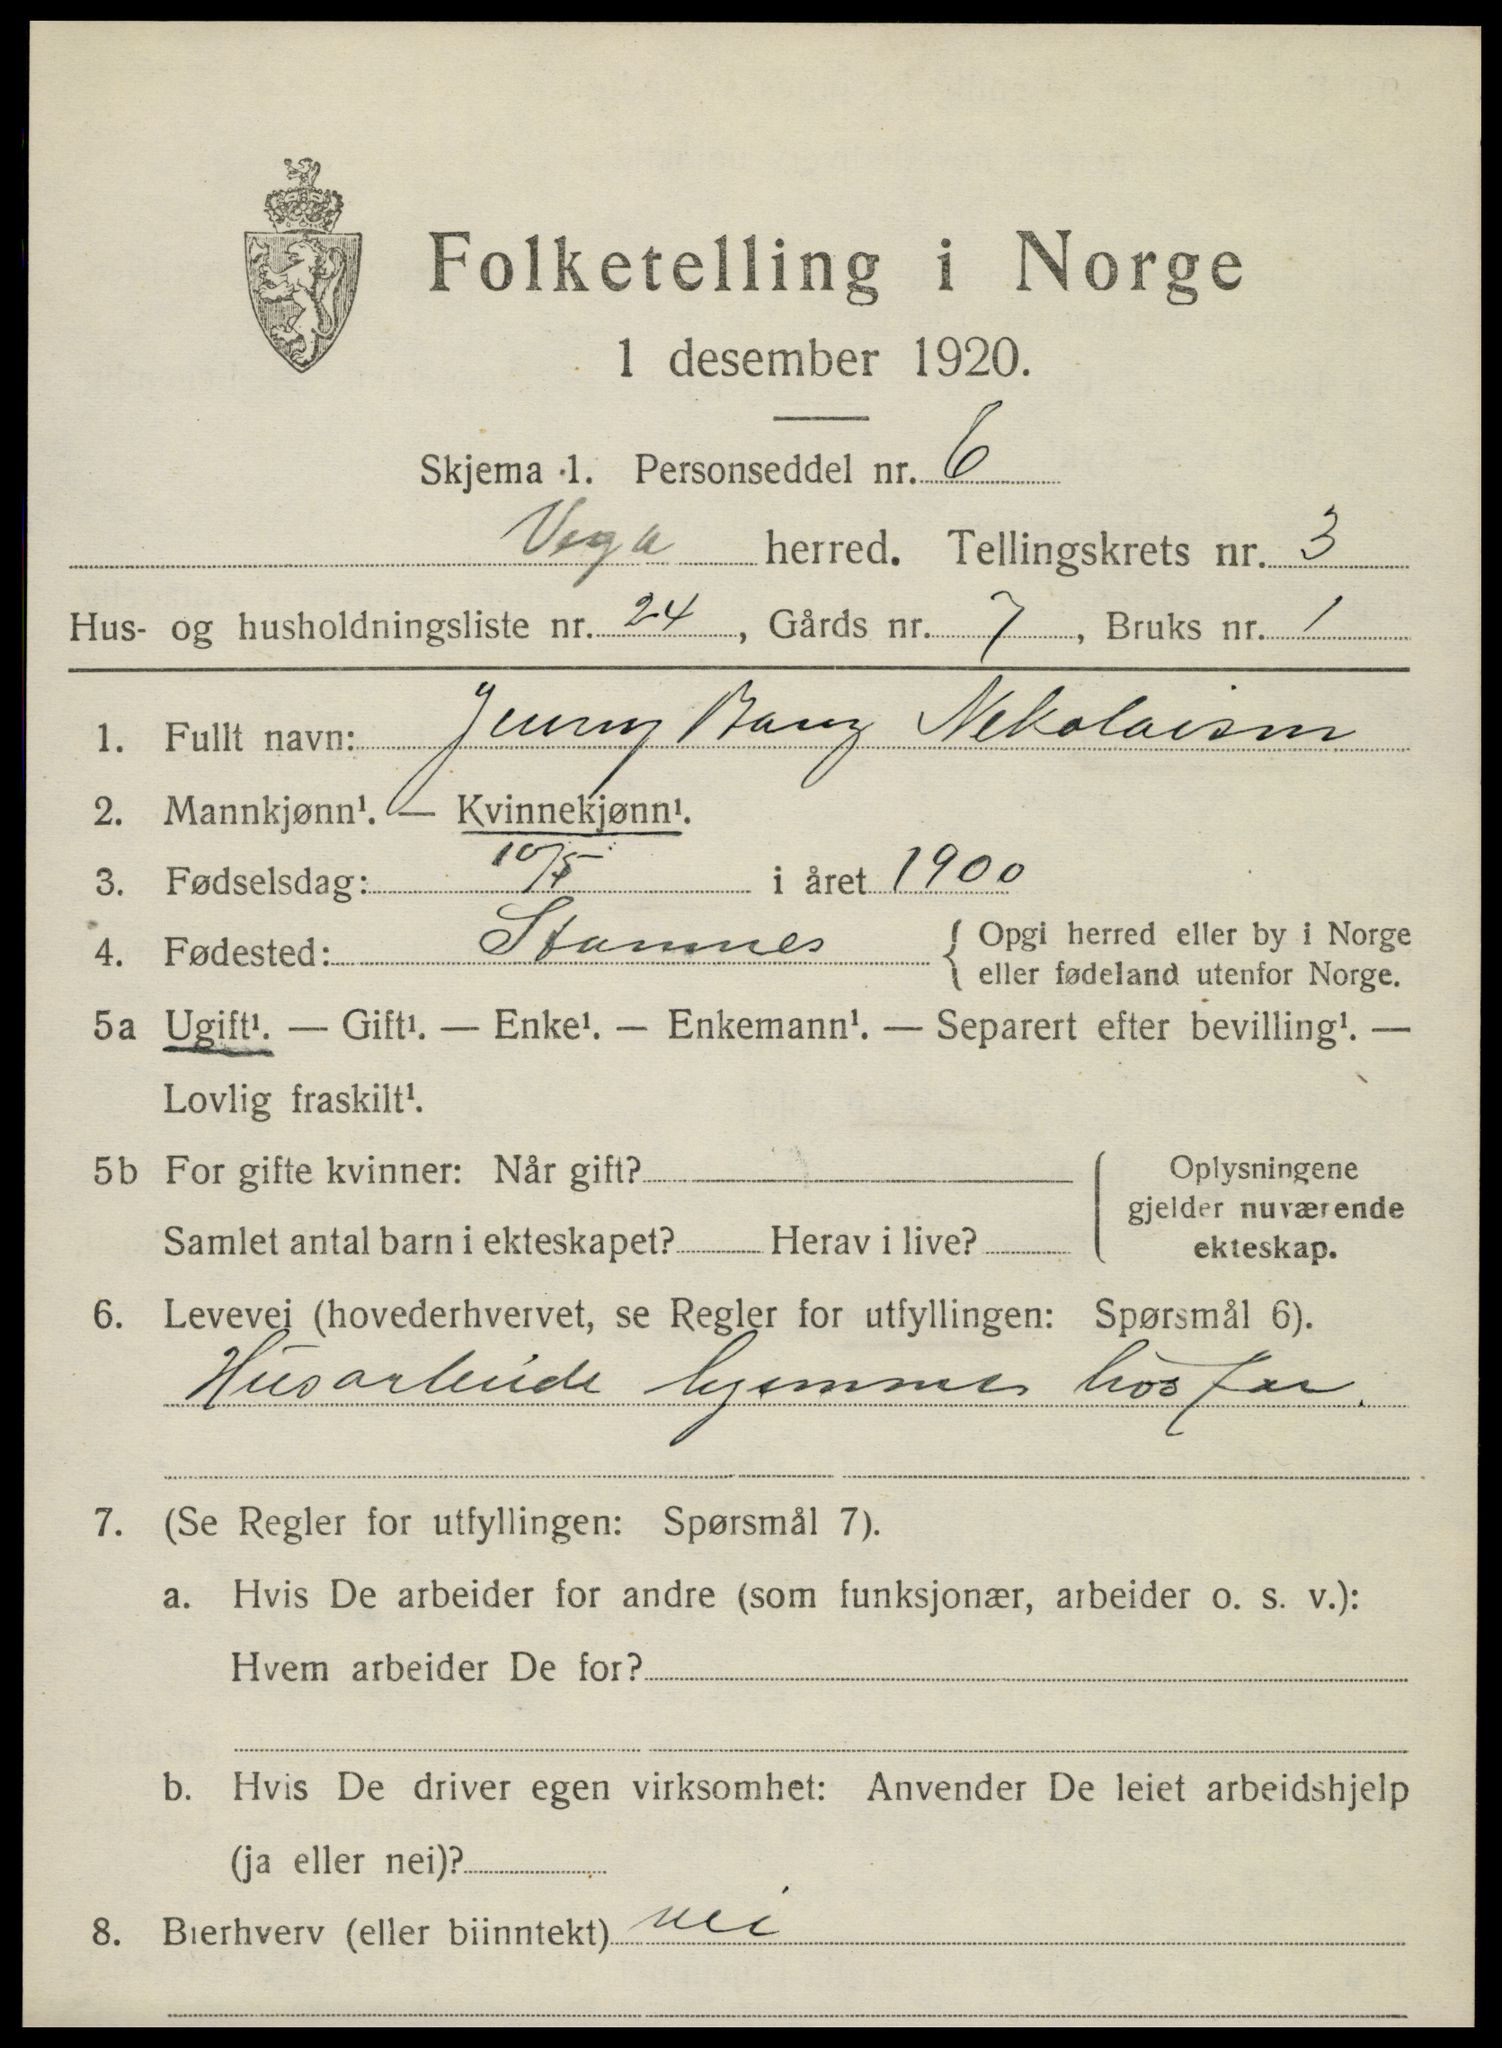 Folketelling i Norge
1 desember 1920.
Skjema 1. Personseddel nr. 6
Vega herred. Tellingskrets nr. 3
Hus- og husholdningsliste nr. 24, Gårds nr. 7, Bruks nr. 1
1. Fullt navn: Jenny Bang Nekolaisen
2. Mannkjønn¹. — Kvinnekjønn¹.
3. Fødselsdag: 10/5 i året 1900
4. Fødested: Stamnes { Opgi herred eller by i Norge
eller fødeland utenfor Norge.
5a Ugift¹. — Gift¹. — Enke¹. — Enkemann¹. — Separert efter bevilling¹. —
Lovlig fraskilt¹.
5b For gifte kvinner: Når gift?
Samlet antal barn i ekteskapet? Herav i live?
Oplysningene
gjelder nuværende
ekteskap.
6. Levevei (hovederhvervet, se Regler for utfyllingen: Spørsmål 6).
Husarbeide hjemme hos far.
7. (Se Regler for utfyllingen: Spørsmål 7).
a. Hvis De arbeider for andre (som funksjonær, arbeider o. s. v.):
Hvem arbeider De for?
b. Hvis De driver egen virksomhet: Anvender De leiet arbeidshjelp
(ja eller nei)?
8. Bierhverv (eller biinntekt) nei